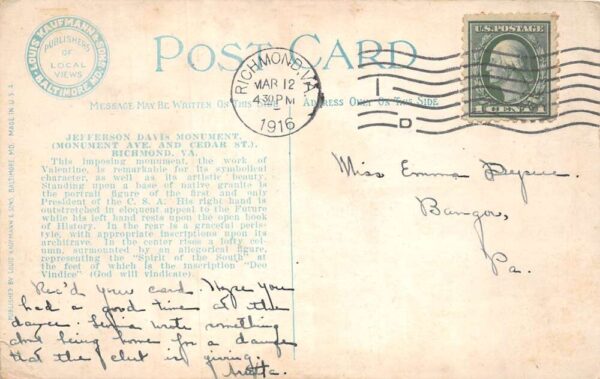 LOUIS KAUFMANN & SONS
BALTIMORE MD.
PUBLISHERS
OF
LOCAL
VIEWS
POST CARD
MESSAGE MAY BE WRITTEN ON THIS SIDE
ADDRESS ONLY ON THIS SIDE
RICHMOND, VA.
MAR 12
4 30 PM
1916
1
D
U.S. POSTAGE
1 CENT 1
PUBLISHED BY LOUIS KAUFMANN & SONS, BALTIMORE MD. MADE IN U.S.A.
JEFFERSON DAVIS MONUMENT,
(MONUMENT AVE. AND CEDAR ST.),
RICHMOND, VA.
This imposing monument, the work of
Valentine, is remarkable for its symbolical
character, as well as its artistic beauty.
Standing upon a base of native granite is
the portrait figure of the first and only
President of the C. S. A. His right hand is
outstretched in eloquent appeal to the Future
while his left hand rests upon the open book
of History. In the rear is a graceful peris-
tyle, with appropriate inscriptions upon its
architrave. In the center rises a lofty col-
umn, surmounted by an allegorical figure,
representing the "Spirit of the South" at
the feet of which is the inscription "Deo
Vindice" (God will vindicate).
Rec'd your card. Hope you
had a good time at the
dance. wrote something
about being home for a dance
that the club is giving.
Miss Emma
Bangor,
Pa.